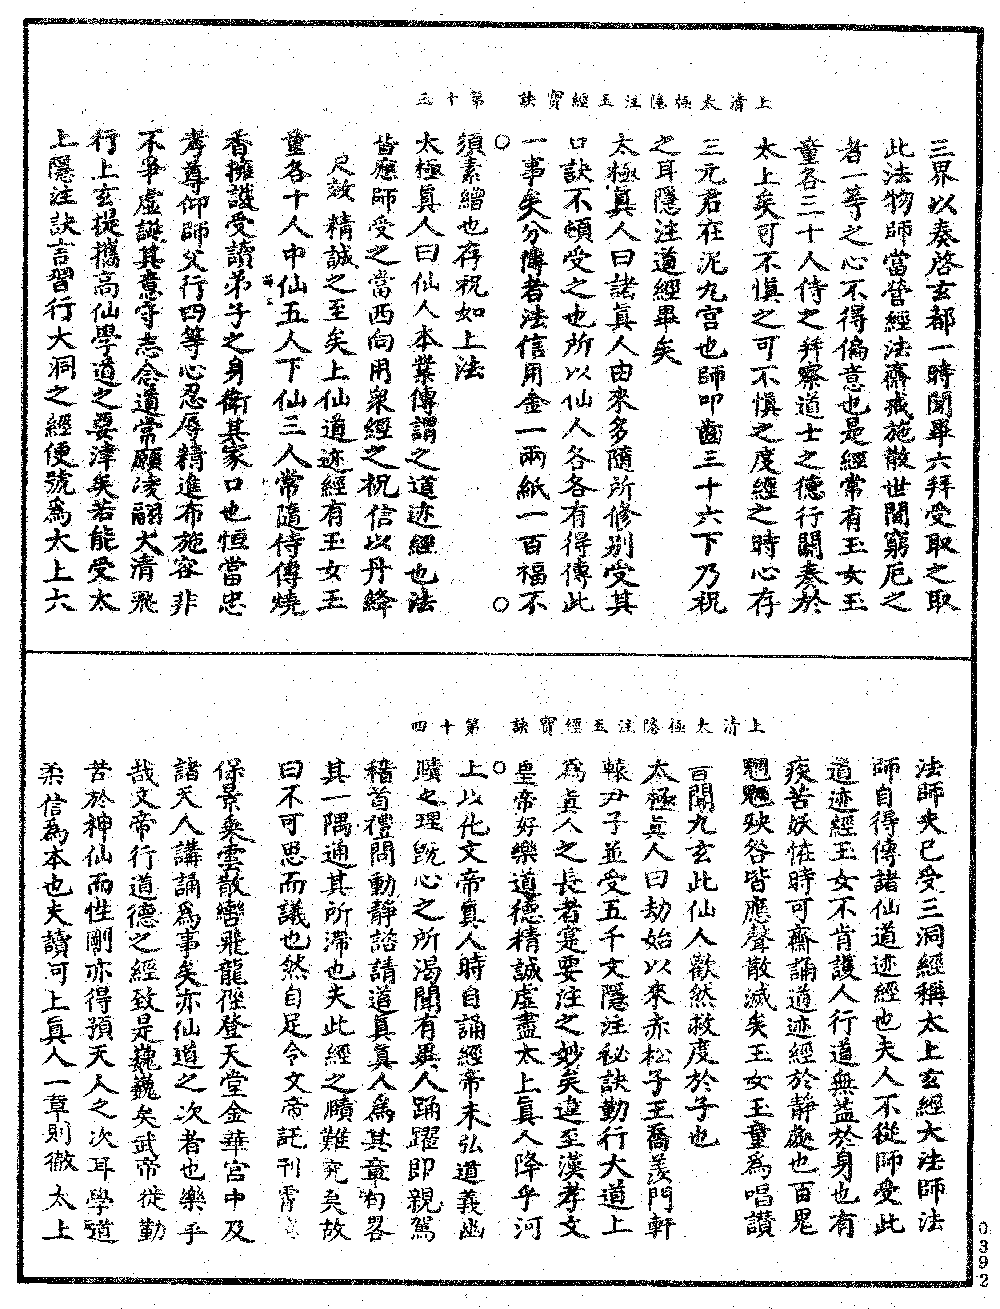 上清太極隱注玉經寶訣　第十三
三界以奏啓玄都一時聞畢六拜受取之取
此法物師當營經法齋戒施散世間窮厄之
者一等之心不得偏意也是經常有玉女玉
童各三十人侍之拜察道士之德行關奏於
太上矣可不慎之可不慎之度經之時心存
三元君在泥九宮也師叩齒三十六下乃祝
之耳隱注道經畢矣
太極真人曰諸真人由來多隨所修別受其
口訣不頓受之也所以仙人各各有得傳此
一事矣分傳者法信用金一兩紙一百福不
須素繒也存祝如上法
太極真人曰仙人本業傳謂之道迹經也法
皆應師受之當西向用衆經之祝信以丹絳
尺效精誠之至矣上仙道迹經有玉女玉
童各十人中仙五人下仙三人常隨侍傳燒
香擁護受讀弟子之身衛其家口也恒當忠
孝尊仰師父行四等心忍辱精進布施容非
不爭虛誕其意守志念道常願淩翮太清飛
行上玄提攜高仙學道之要津矣若能受太
上隱注訣言習行大洞之經便號爲太上六
上清太極隱注玉經寶訣　第十四
法師夫已受三洞經稱太上玄經大法師法
師自得傳諸仙道迹經也夫人不從師受此
道迹經玉女不肯護人行道無益於身也有
疾苦妖怪時可齋誦道迹經於靜處也百鬼
魍魎殃咎皆應聲散滅矣玉女玉童爲唱讚
百聞九玄此仙人歡然救度於子也
太極真人曰劫始以來赤松子王喬羨門軒
轅尹子並受五千文隱注秘訣勤行大道上
爲真人之長者寔要注之妙矣違至漢孝文
皇帝好樂道德精誠虛盡太上真人降乎河
上以化文帝真人時自誦經帝未弘道義幽
賾之理既心之所渴聞有異人踊躍即親駕
稽首禮問動靜諮請道真真人爲其章句畧
其一隅通其所滯也夫此經之賾難究矣故
曰不可思而議也然自足令文帝託刊霄
保景乘雲散轡飛龍徑登天堂金華宮中及
諸天人講誦爲事矣亦仙道之次者也樂乎
哉文帝行道德之經致是巍巍矣武帝徒勤
苦於神仙而性剛亦得預天人之次耳學道
柔信爲本也夫讀可上真人一章則徹太上
0392